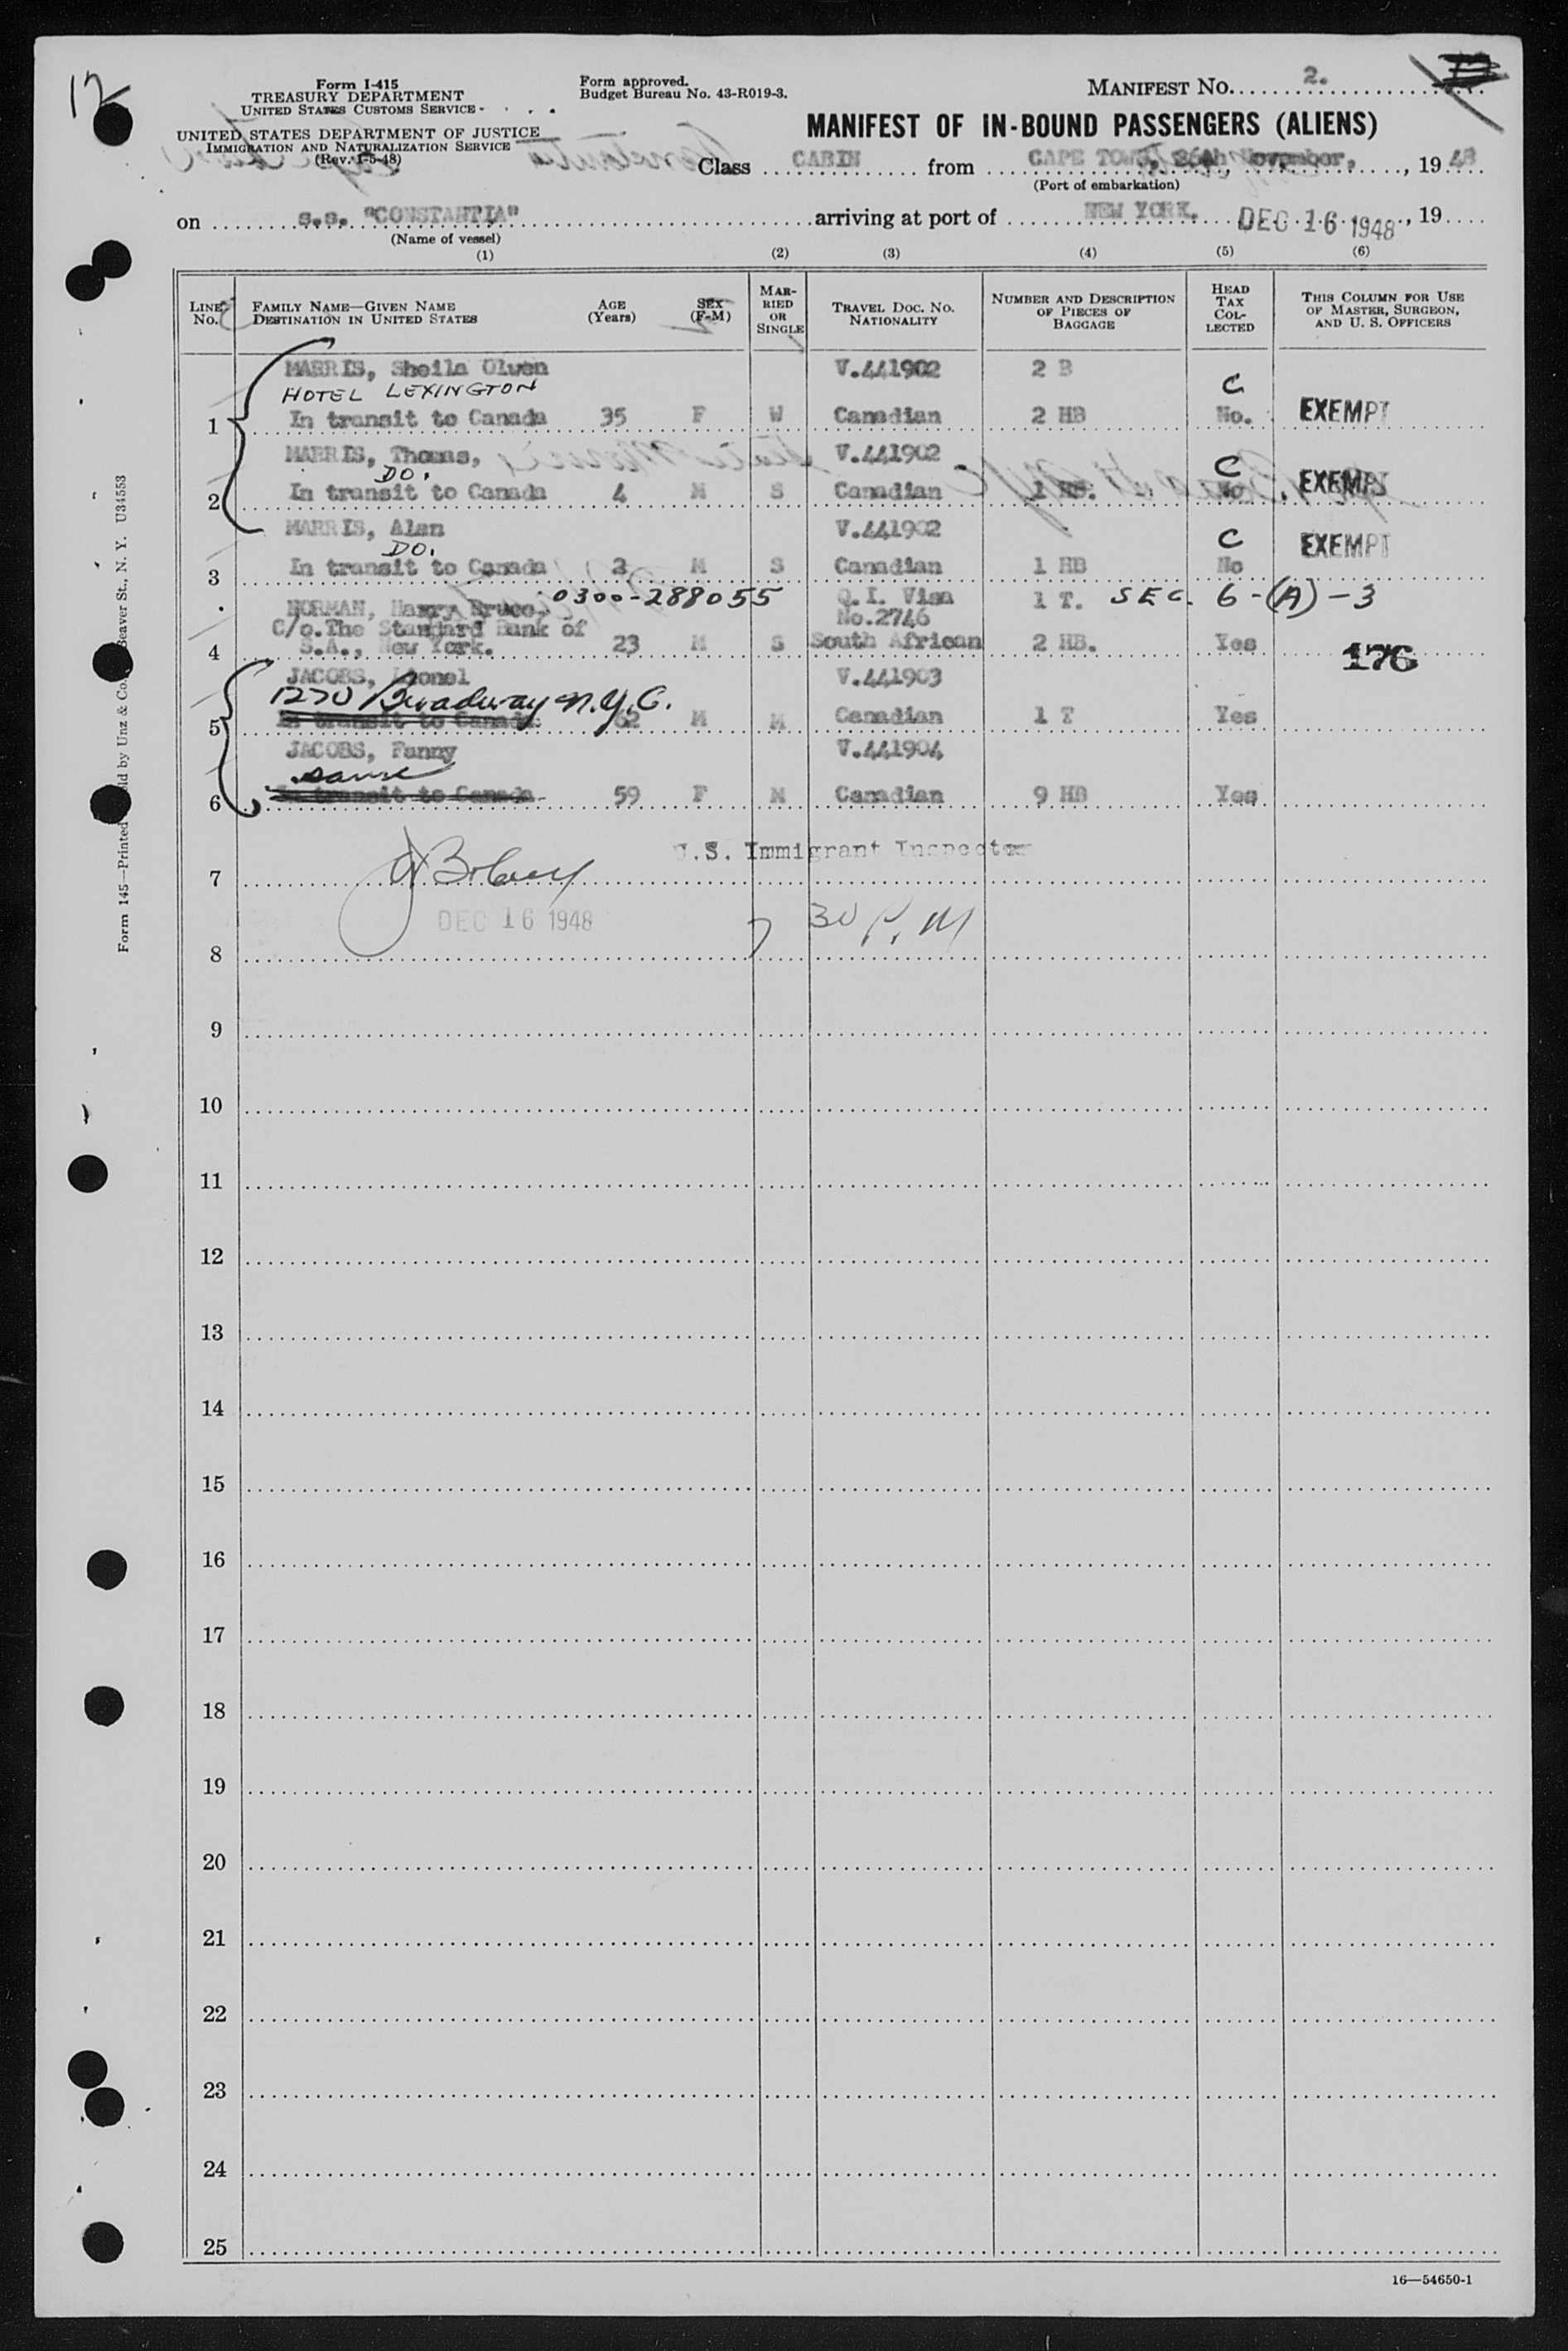 12
Form I-415
TREASURY DEPARTMENT
UNITED STATES CUSTOMS SERVICE
UNITED STATES DEPARTMENT OF JUSTICE
IMMIGRATION AND NATURALIZATION SERVICE
(Rev. 1-5-48)
Form approved.
Budget Bureau No. 43-R019-3.
MANIFEST No. 2.
MANIFEST OF IN-BOUND PASSENGERS (ALIENS)
Class CABIN from CAPE TOWN, 26th November, , 19 48
(Port of embarkation)
on s.s. "CONSTANTIA" arriving at port of NEW YORK. DEC 16 1948, 19
(Name of vessel)
(1) (2) (3) (4) (5) (6)
LINE No. FAMILY NAME—GIVEN NAME DESTINATION IN UNITED STATES AGE (Years) SEX (F-M) MARRIED OR SINGLE TRAVEL DOC. No. NATIONALITY NUMBER AND DESCRIPTION OF PIECES OF BAGGAGE HEAD TAX COLLECTED THIS COLUMN FOR USE OF MASTER, SURGEON, AND U. S. OFFICERS
MARRIS, Sheila Olwen V.441902 2 B
HOTEL LEXINGTON C
1 In transit to Canada 35 F W Canadian 2 HB No. EXEMPT
MARRIS, Thomas, V.441902
DO. C
2 In transit to Canada 4 M S Canadian 1 HB. No EXEMPT
MARRIS, Alan V.441902
DO. C
3 In transit to Canada 2 M S Canadian 1 HB No EXEMPT
0300-288055 SEC. 6-(A)-3
NORMAN, Harry Bruce. Q.I. Visa 1 T.
C/o.The Standard Bank of No.2746
4 S.A., New York. 23 M S South African 2 HB. Yes 176
JACOBS, Lionel V.441903
1270 Broadway N.Y.C.
5 In transit to Canada 62 M M Canadian 1 T Yes
JACOBS, Fanny V.441904
same
6 In transit to Canada 59 F M Canadian 9 HB Yes
U.S. Immigrant Inspector
7
DEC 16 1948 7 30 P.M
8
9
10
11
12
13
14
15
16
17
18
19
20
21
22
23
24
25
16—54650-1
Form 145—Printed
ld by Unz & Co.
Beaver St., N. Y. U34553